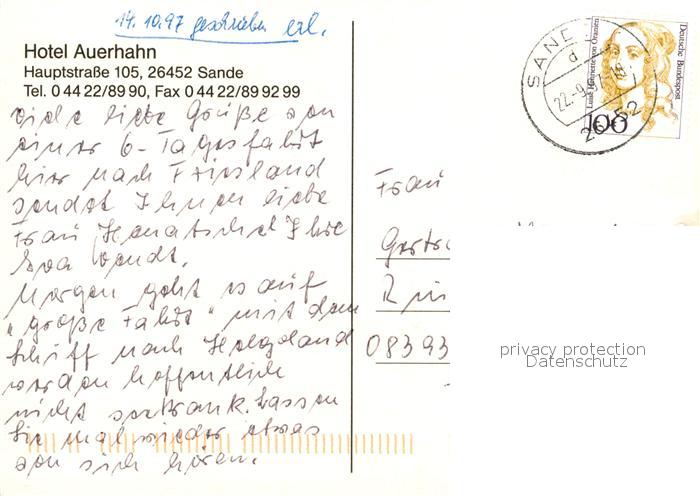 14.10.97 geschrieben erl.
Hotel Auerhahn
Hauptstraße 105, 26452 Sande
Tel. 0 44 22/89 90, Fax 0 44 22/89 92 99
viele liebe Grüße von
einer 6-Tagesfahrt
hier nach Friesland
sendet Ihnen liebe
Frau Ihre
Morgen geht es auf
"große Fahrt" mit dem
Schiff nach Helgoland
werden hoffentlich
nicht seekrank. Lassen
Sie mal wieder etwas
von sich hören.
Frau
08393
SANDE
22.-9.
26452
100
Deutsche Bundespost
Luise Henriette von Oranien
privacy protection
Datenschutz